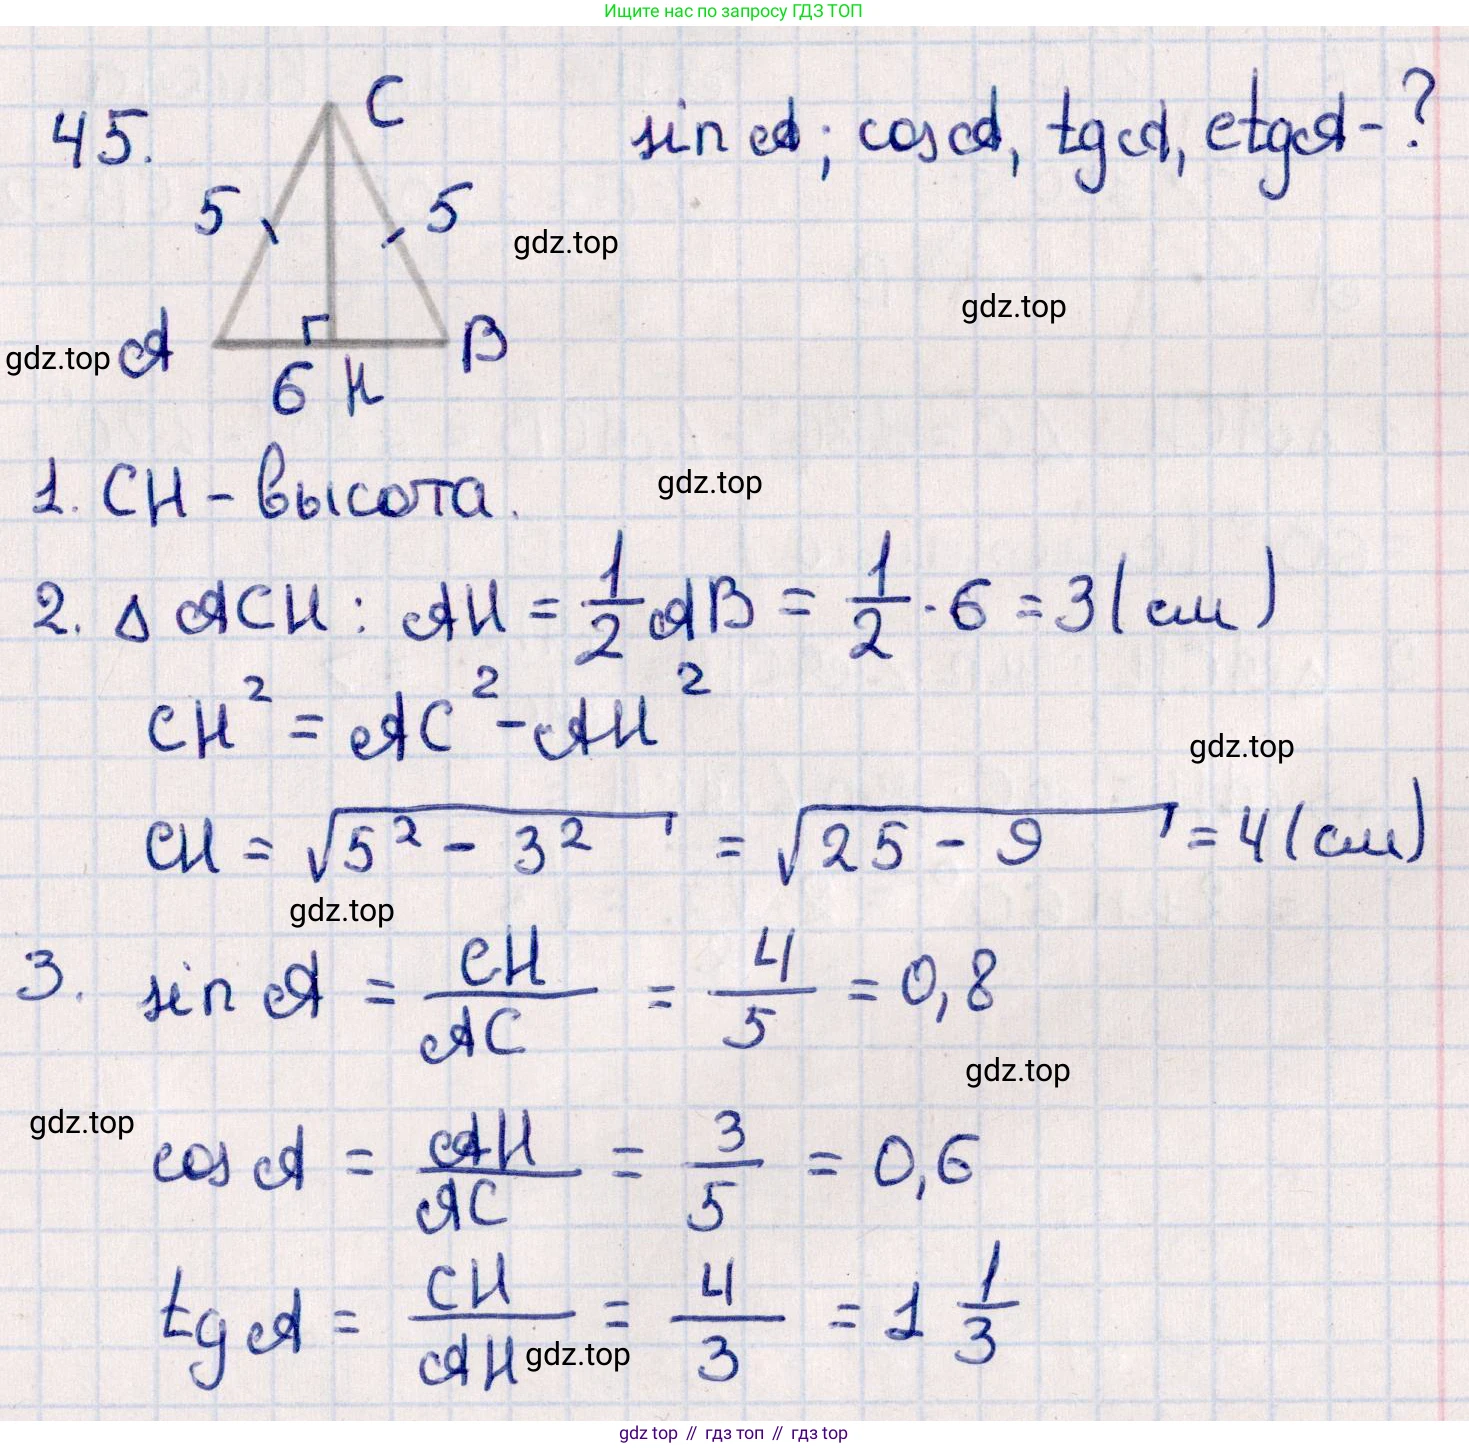 Ищите нас по запросу ГДЗ ТОП
45.
C
sin A; cos A, tg A, ctg A - ?
5
5
gdz.top
gdz.top
gdz.top
A
B
6
H
1. CH - высота.
gdz.top
2. Δ ACH: AH = 1/2 AB = 1/2 · 6 = 3 (см)
CH² = AC² - AH²
gdz.top
CH = √5² - 3² = √25 - 9 = 4 (см)
gdz.top
3. sin A = CH/AC = 4/5 = 0,8
gdz.top
gdz.top
cos A = AH/AC = 3/5 = 0,6
tg A = CH/AH = 4/3 = 1 1/3
gdz.top
gdz top // гдз топ // gdz top